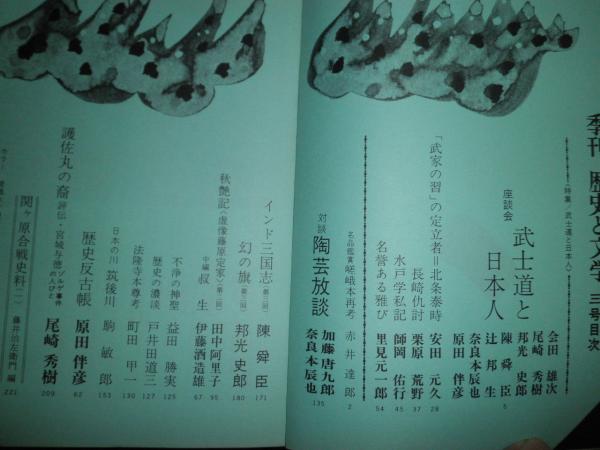 季刊 歴史と文学 三号目次
〈特集／武士道と日本人〉
座談会 武士道と日本人
会田雄次
尾崎秀樹
邦光史郎
陳舜臣
辻邦生
奈良本辰也
原田伴彦
5
「武家の習」の定立者＝北条泰時 安田元久 28
長崎仇討 栗原荒野 37
水戸学私記 師岡佑行 45
名誉ある雅び 里見元一郎 54
名品鑑賞 嵯峨本再考 赤井達郎 2
対談 陶芸放談 加藤唐九郎 奈良本辰也 135
インド三国志（第三回） 陳舜臣 171
幻の旗（第三回） 邦光史郎 180
秋艶記〈虚像藤原定家〉（第二回） 田中阿里子 95
中編 叔生 伊藤酒造雄 67
不浄の神聖 益田勝実 125
歴史の濃淡 戸井田道三 127
法隆寺本尊考 町田甲一 130
日本の川 筑後川 駒敏郎 153
歴史反古帳 原田伴彦 62
護佐丸の裔 評伝・宮城与徳 ゾルゲ事件の人びと 尾崎秀樹 209
関ヶ原合戦史料（一） 藤井治左衛門 編 221